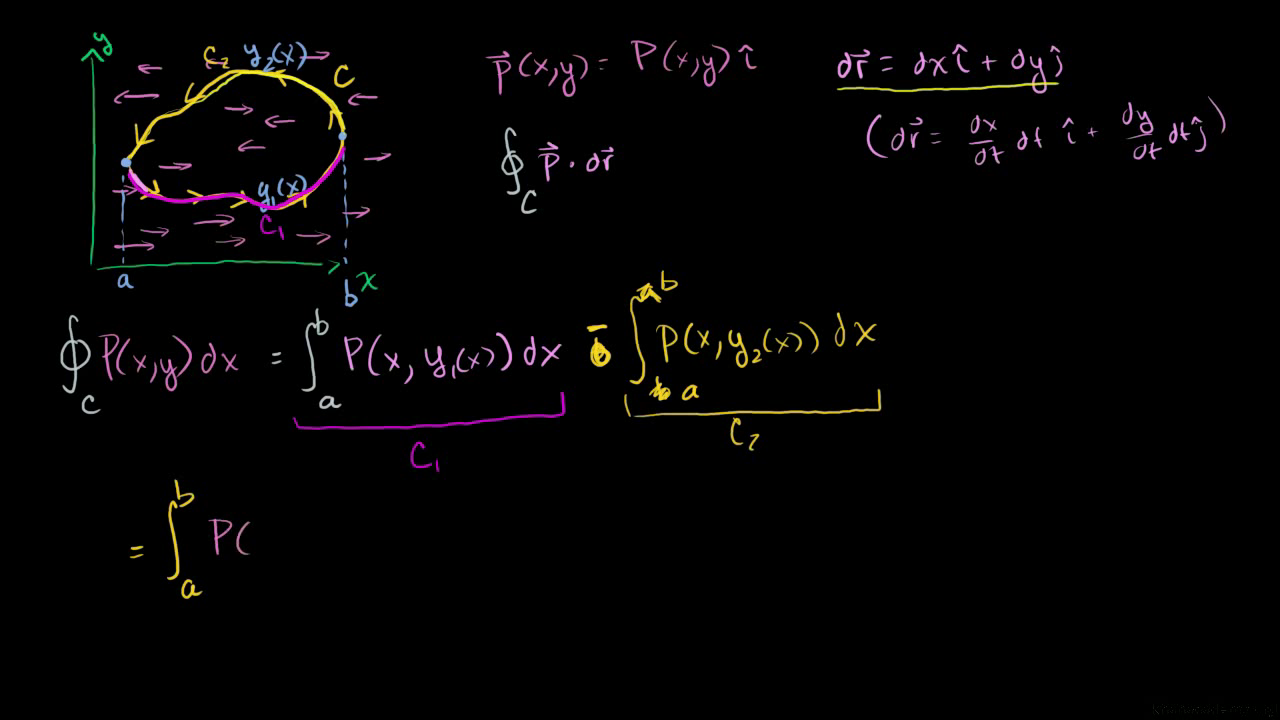 y
C₂ y₂(x) C
y₁(x)
C₁
a b x
p⃗(x,y) = P(x,y) î
dr⃗ = dx î + dy ĵ
(dr⃗ = dx/dt dt î + dy/dt dt ĵ)
∮_C p⃗ · dr⃗
∮_C P(x,y) dx = ∫_a^b P(x, y₁(x)) dx - ∫_a^b P(x, y₂(x)) dx
C₁ C₂
= ∫_a^b P(